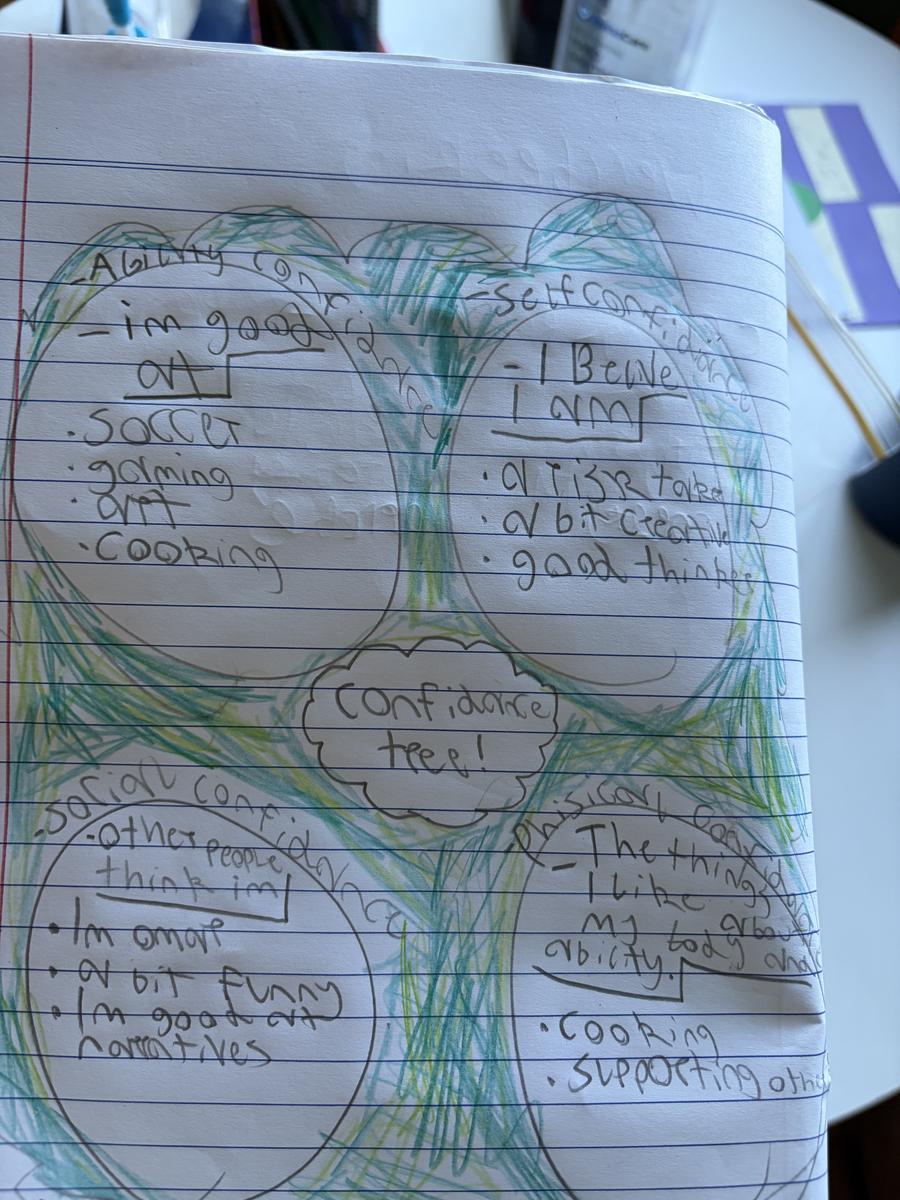 -Ability confidance
- im good
at
· soccer
· gaming
· art
· cooking
-self confidance
- I Belive
I am
· a risk taker
· a bit creative
· good thinker
confidance
tree!
-social confidance
-other people
think im
· Im smart
· a bit funny
· Im good at
narratives
- The things
I like about
my body and
ability.
· cooking
· supporting